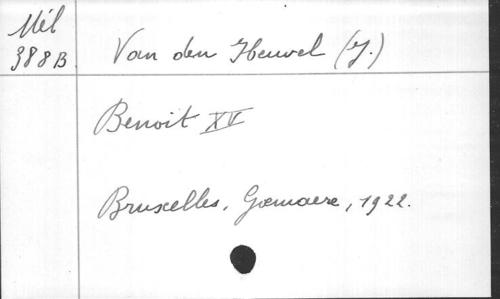 Mél
388B
Van den Heuvel (J.)
Benoit XV
Bruxelles, Goemaere, 1922.